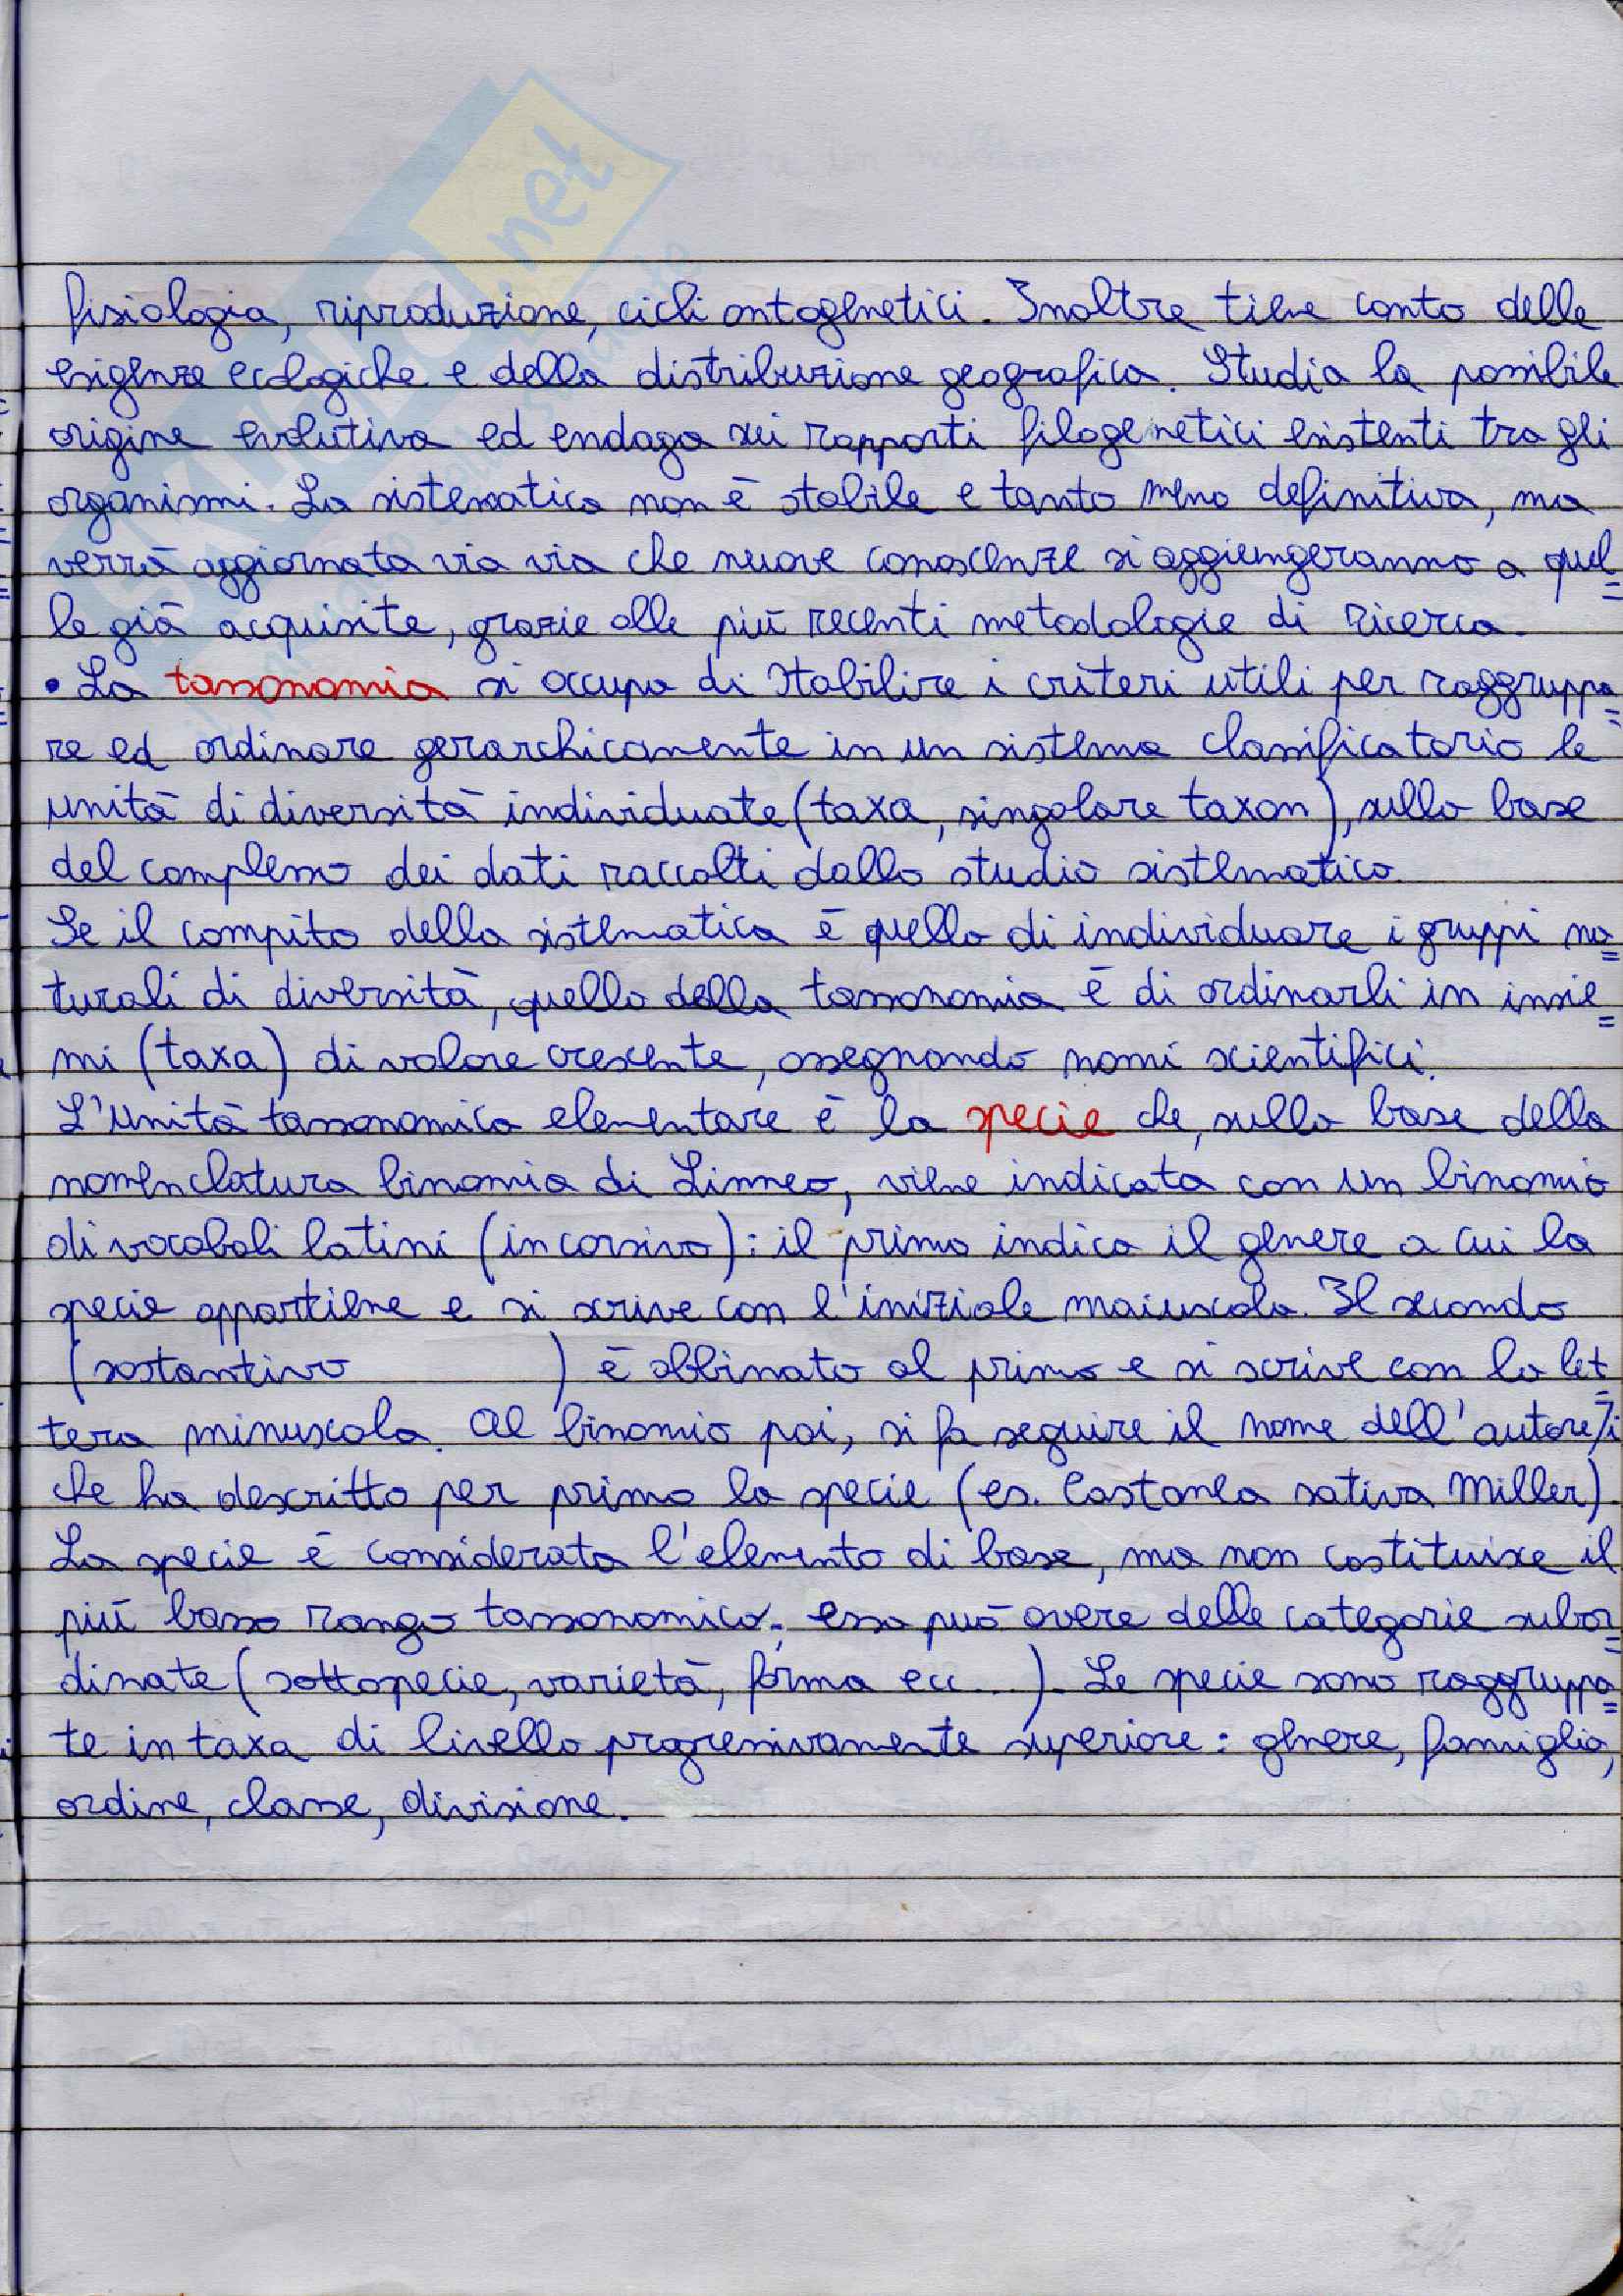 SKUOLA.net
fisiologia, riproduzione, cicli ontogenetici. Inoltre tiene conto delle
esigenze ecologiche e della distribuzione geografica. Studia la possibile
origine evolutiva ed endaga sui rapporti filogenetici esistenti tra gli
organismi. La sistematica non è stabile e tanto meno definitiva, ma
verrà aggiornata via via che nuove conoscenze si aggiungeranno a quel=
le già acquisite, grazie alle più recenti metodologie di ricerca.
• La tassonomia si occupa di stabilire i criteri utili per raggruppa=
re ed ordinare gerarchicamente in un sistema classificatorio le
unità di diversità individuate (taxa, singolare taxon), sulla base
del complesso dei dati raccolti dallo studio sistematico.
Se il compito della sistematica è quello di individuare i gruppi na=
turali di diversità, quello della tassonomia è di ordinarli in insie=
mi (taxa) di valore crescente, assegnando nomi scientifici.
L'unità tassonomica elementare è la specie che, sulla base della
nomenclatura binomia di Linneo, viene indicata con un binomio
di vocaboli latini (in corsivo): il primo indica il genere a cui la
specie appartiene e si scrive con l'iniziale maiuscola. Il secondo
(sostantivo ) è abbinato al primo e si scrive con la let=
tera minuscola. Al binomio poi, si fa seguire il nome dell'autore/i
che ha descritto per primo la specie (es. Castanea sativa Miller).
La specie è considerata l'elemento di base, ma non costituisce il
più basso rango tassonomico; essa può avere delle categorie subor=
dinate (sottospecie, varietà, forma ecc...). Le specie sono raggruppa=
te in taxa di livello progressivamente superiore: genere, famiglia,
ordine, classe, divisione.